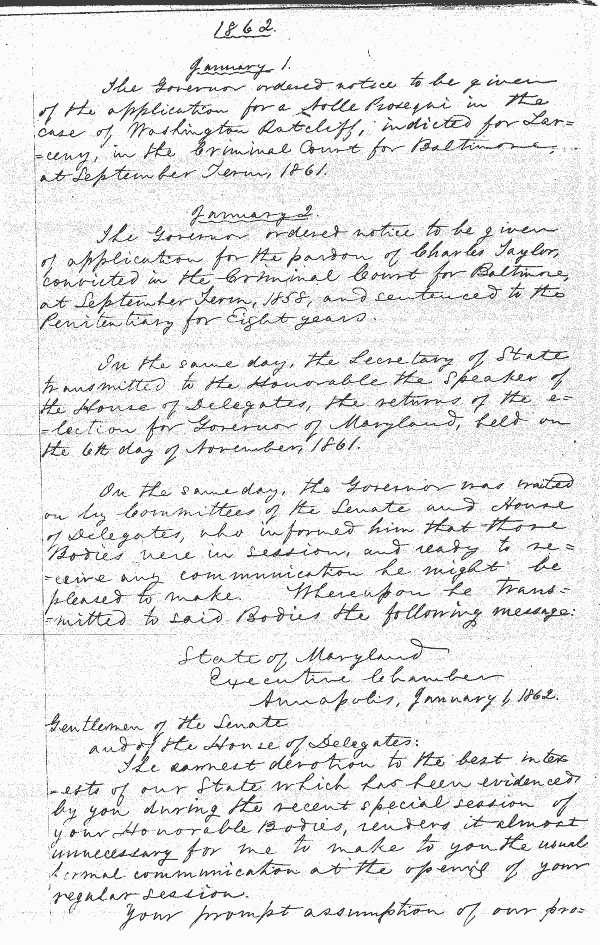 1862.
January 1.
The Governor ordered notice to be given
of the application for a Nolle Prosequi in the
case of Washington Ratcliff, indicted for Lar=
=ceny, in the Criminal Court for Baltimore,
at September Term, 1861.
January 2.
The Governor ordered notice to be given
of application for the pardon of Charles Taylor,
convicted in the Criminal Court for Baltimore,
at September Term, 1858, and sentenced to the
Penitentiary for Eight years.
On the same day, the Secretary of State
transmitted to the Honorable the Speaker of
the House of Delegates, the returns of the e=
=lection for Governor of Maryland, held on
the 6th day of November, 1861.
On the same day, the Governor was waited
on by Committees of the Senate and House
of Delegates, who informed him that those
Bodies were in session, and ready to re=
=ceive any communication he might be
pleased to make. Whereupon he trans=
=mitted to said Bodies the following message:
State of Maryland
Executive Chamber
Annapolis, January 1, 1862.
Gentlemen of the Senate
and of the House of Delegates:
The earnest devotion to the best inter
=ests of our State which has been evidenced
by you during the recent special session of
your Honorable Bodies, renders it almost
unnecessary for me to make to you the usual
formal communication at the opening of your
regular session.
Your prompt assumption of our pro=